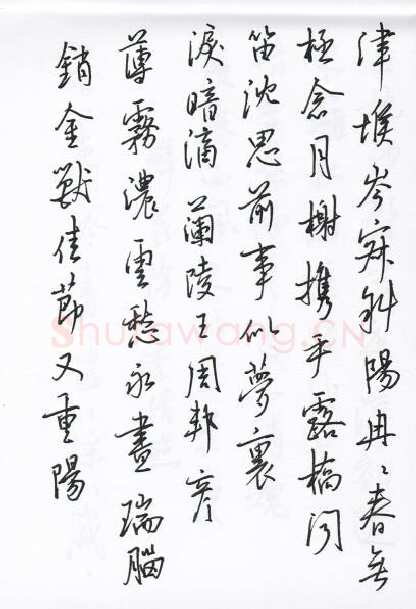 津堠岑寂斜陽冉冉春無
極念月榭攜手露橋聞
笛沈思前事似夢裏
淚暗滴 蘭陵王周邦彦
薄霧濃雲愁永晝瑞腦
銷金獸佳節又重陽
Shufawang.CN